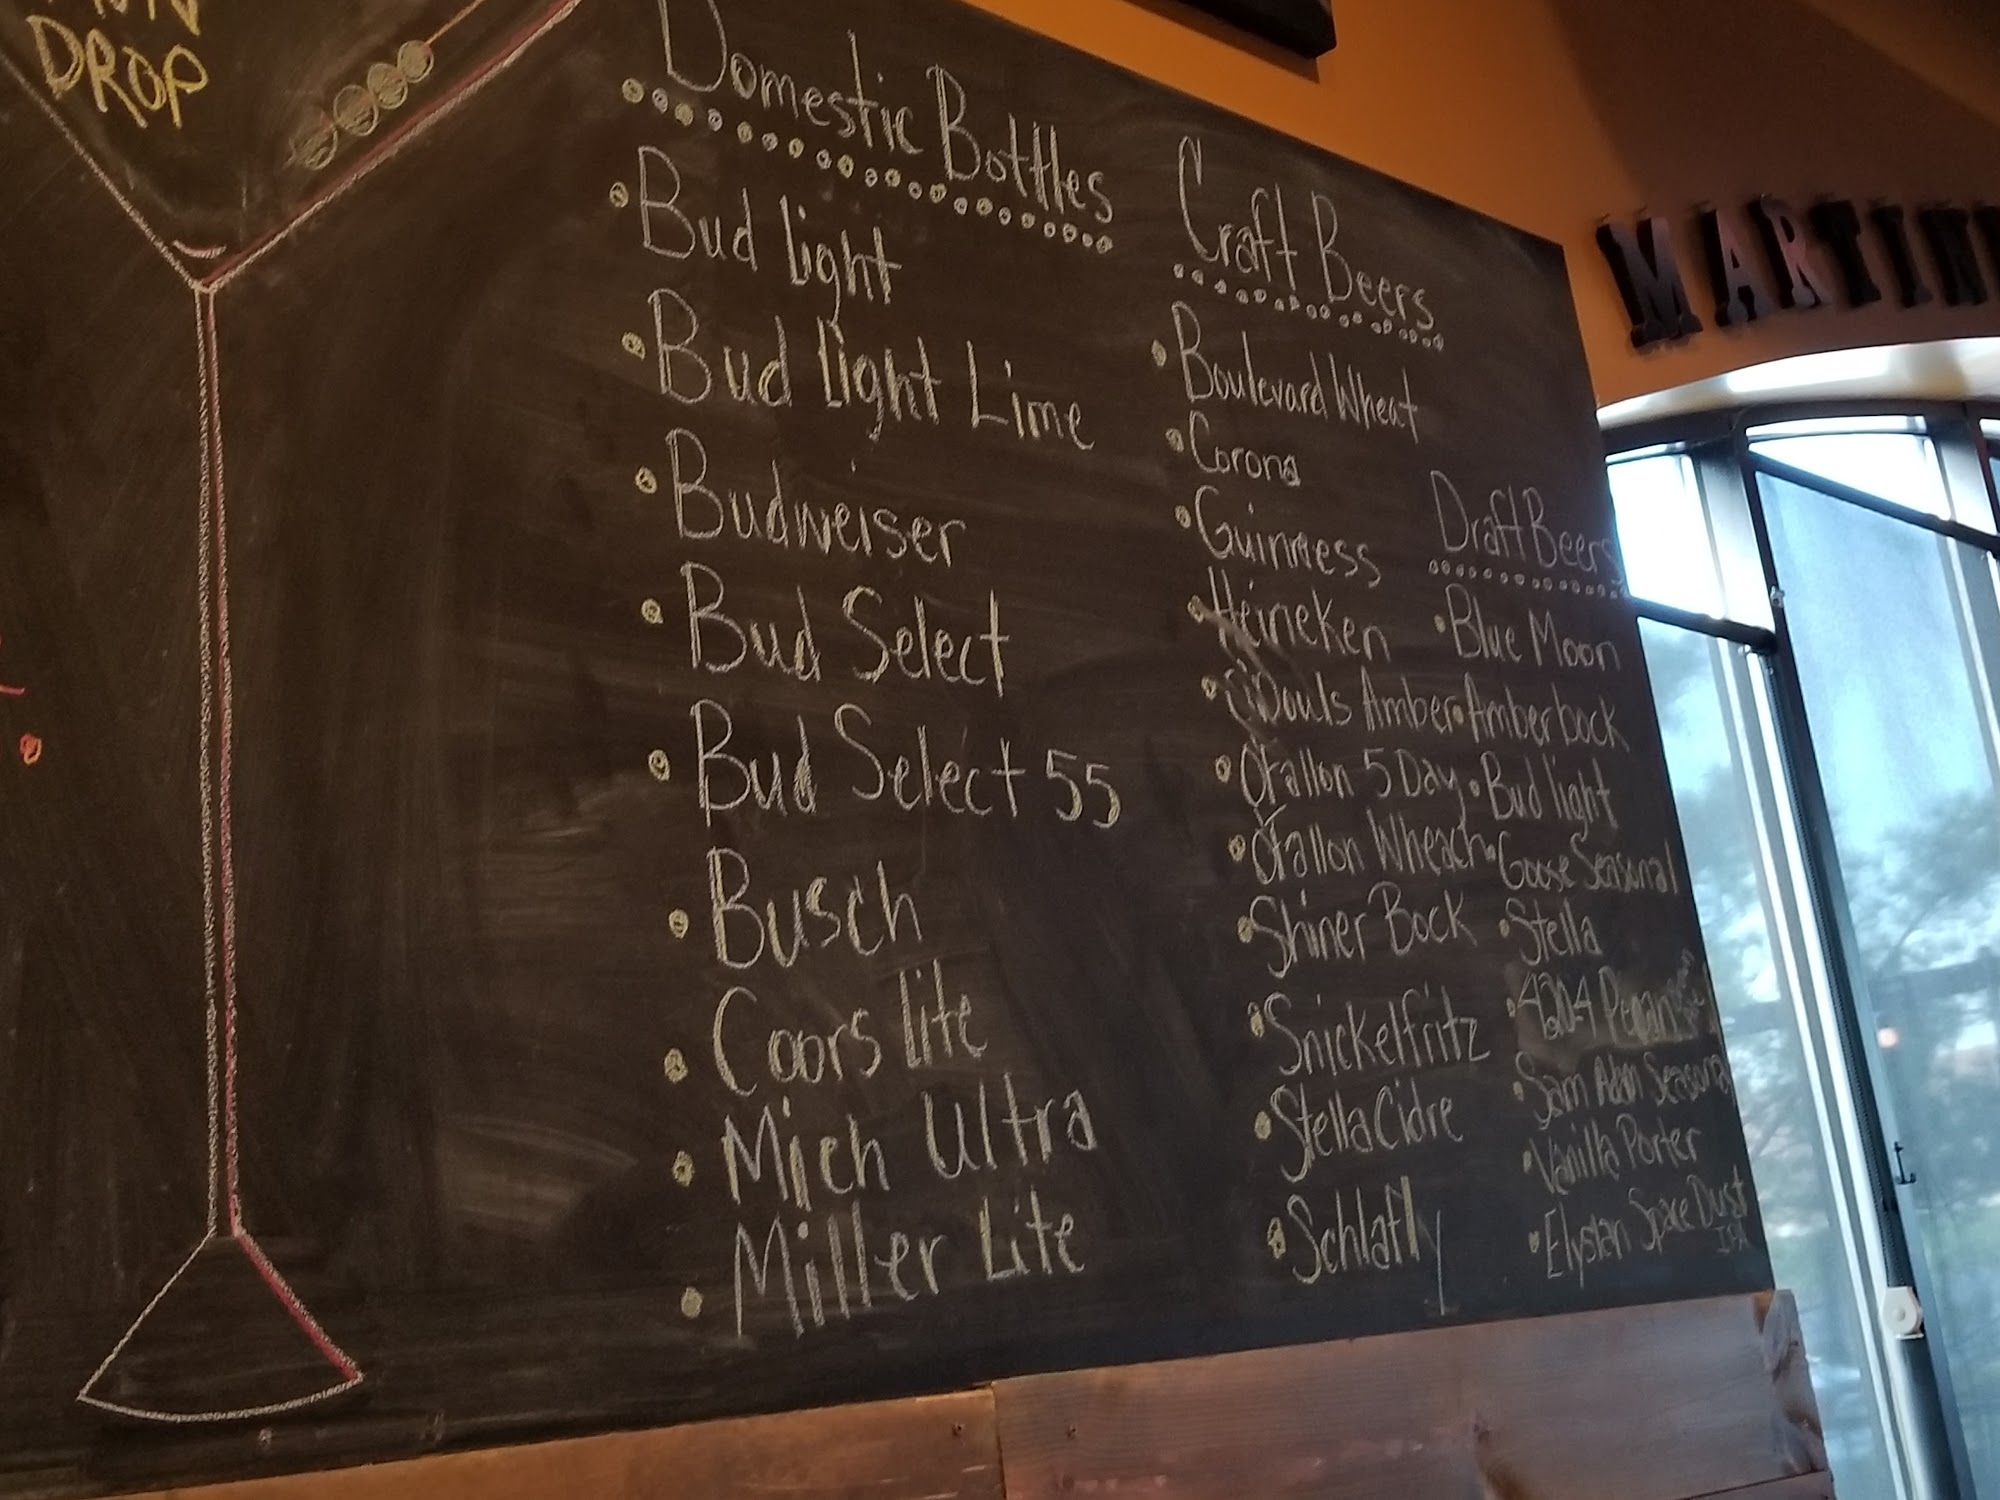 DROP
Domestic Bottles
Bud light
Bud light Lime
Budweiser
Bud Select
Bud Select 55
Busch
Coors lite
Mich Ultra
Miller Lite
Craft Beers
Boulevard Wheat
Corona
Guinness
Heineken
O'Douls Amber
Ofallon 5 Day
Ofallon Wheach
Shiner Bock
Snickelfritz
Stella Cidre
Schlafly
Draft Beers
Blue Moon
Amberbock
Bud light
Goose Seasonal
Stella
4204 Pecan
Sam Adam Seasonal
Vanilla Porter
Elysian Space Dust
IPA
MARTIN